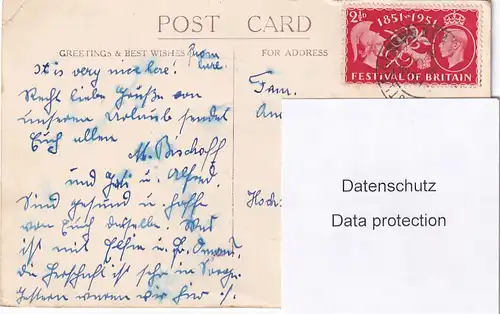 POST CARD
GREETINGS & BEST WISHES from
here.
FOR ADDRESS
2½D 1851-1951
FESTIVAL OF BRITAIN
It is very nice here!
Recht liebe Grüße von
unserem Urlaub sendet
Euch allen
M. Bischoff
und u. Alfred.
Sind gesund u. hoffe
von Euch dasselbe. Was
ist mit u.
die Herrschaft ist sehr in Sorge.
Gestern waren wir hier ./.
Fam.
Hoch
Datenschutz
Data protection